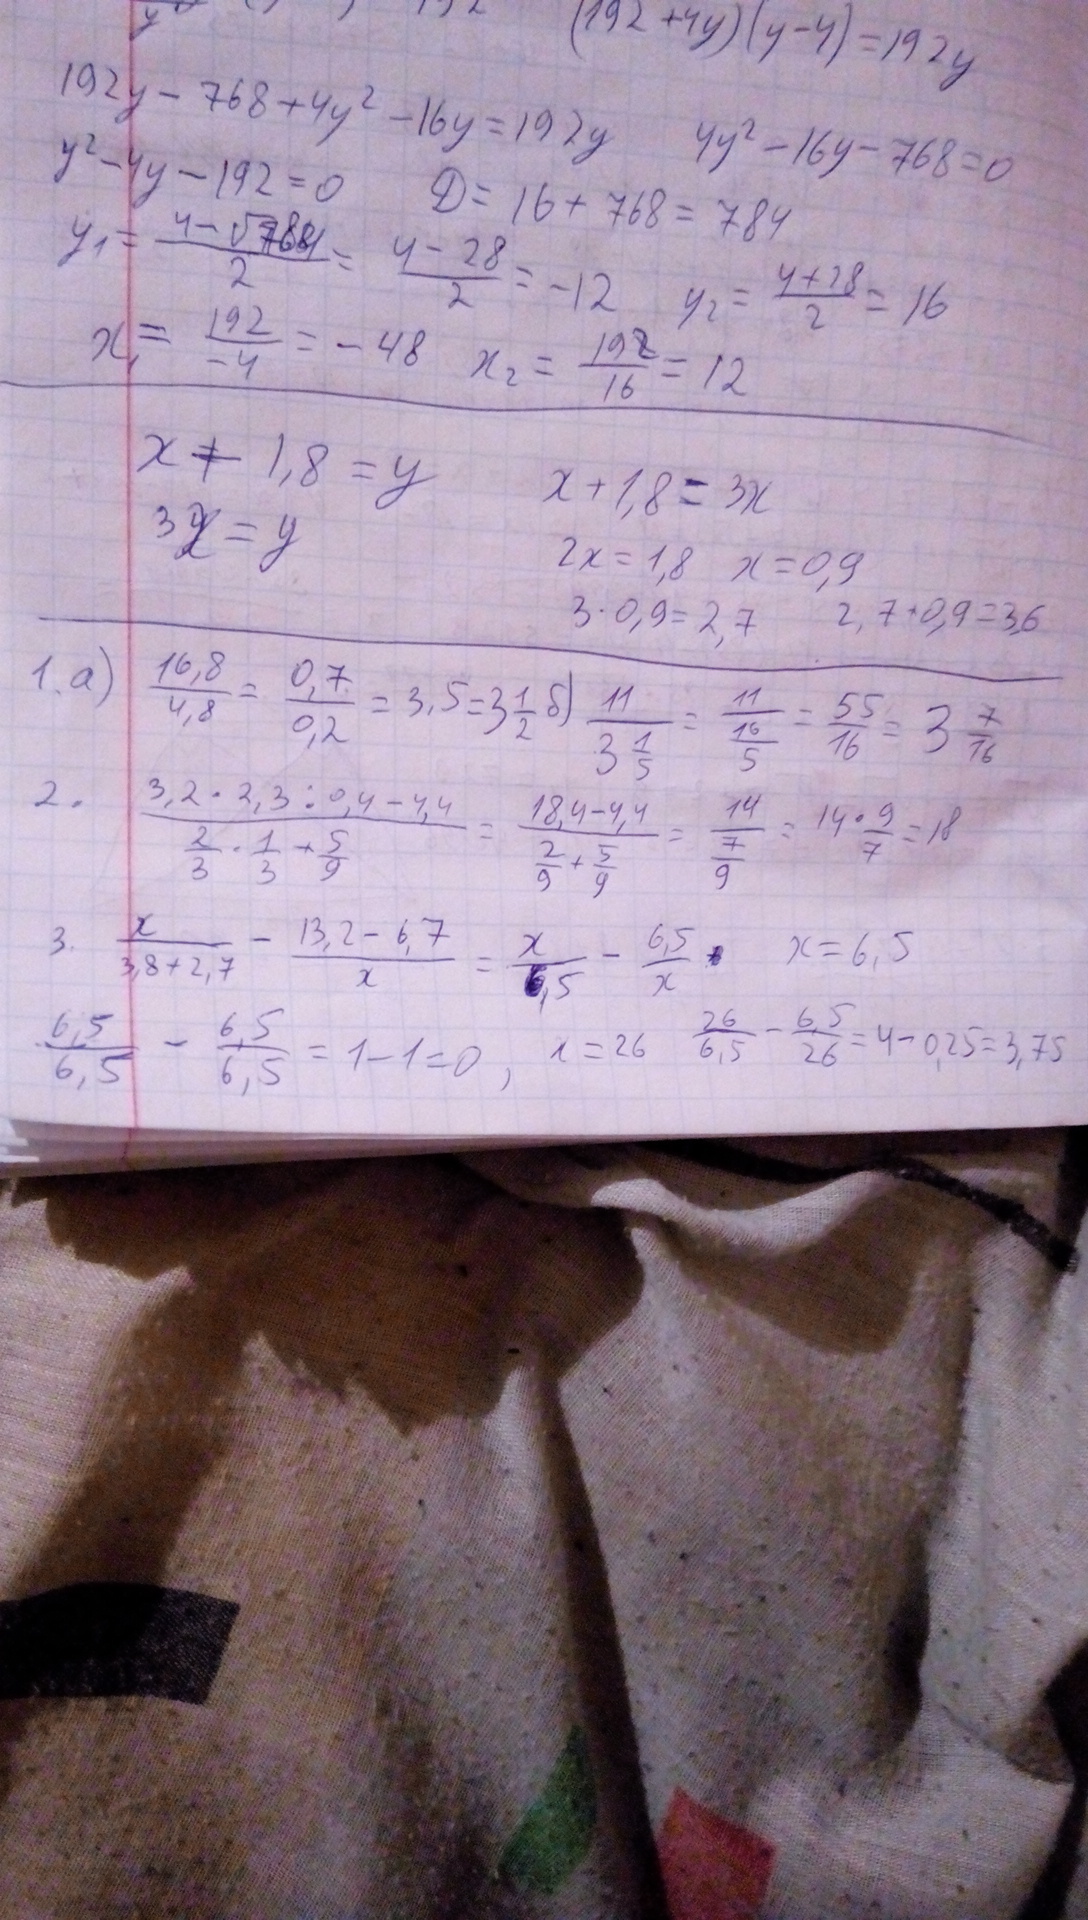 (192+4y)(y-4)=192y
192y-768+4y²-16y=192y 4y²-16y-768=0
y²-4y-192=0 D=16+768=784
y₁=(4-√784)/2=(4-28)/2=-12 y₂=(4+28)/2=16
x₁=192/-4=-48 x₂=192/16=12
x+1,8=y x+1,8=3x
3x=y 2x=1,8 x=0,9
3·0,9=2,7 2,7+0,9=3,6
1. а) 16,8/4,8=0,7/0,2=3,5=3 1/2 б) 11/(3 1/5)=11/(16/5)=55/16=3 7/16
2. (3,2·2,3:0,4-4,4)/(2/3·1/3+5/9)=(18,4-4,4)/(2/9+5/9)=14/(7/9)=14·9/7=18
3. x/(3,8+2,7)-(13,2-6,7)/x=x/6,5-6,5/x x=6,5
6,5/6,5-6,5/6,5=1-1=0, x=26 26/6,5-6,5/26=4-0,25=3,75